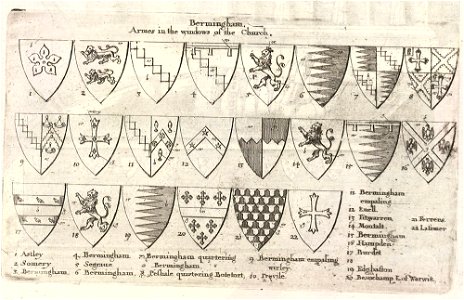 Bermingham.
Armes in the windows of the Church.
1 Astley
2 Somery
3 Bermingham
4 Bermingham
5 Segrave
6 Bermingham
7 Bermingham quartering
Bermingham.
8 Peshale quartering Botetort
9 Bermingham empaling
10 Peyvile
11 Bermingham
empaling
12 Ewell
13 Fitzwaren
14 Montalt
15 Bermingham
16 Hampden
17 Burdet
18
19 Edgbaston
20 Beauchamp E. of Warwik
21 Ferrers
22 Latimer